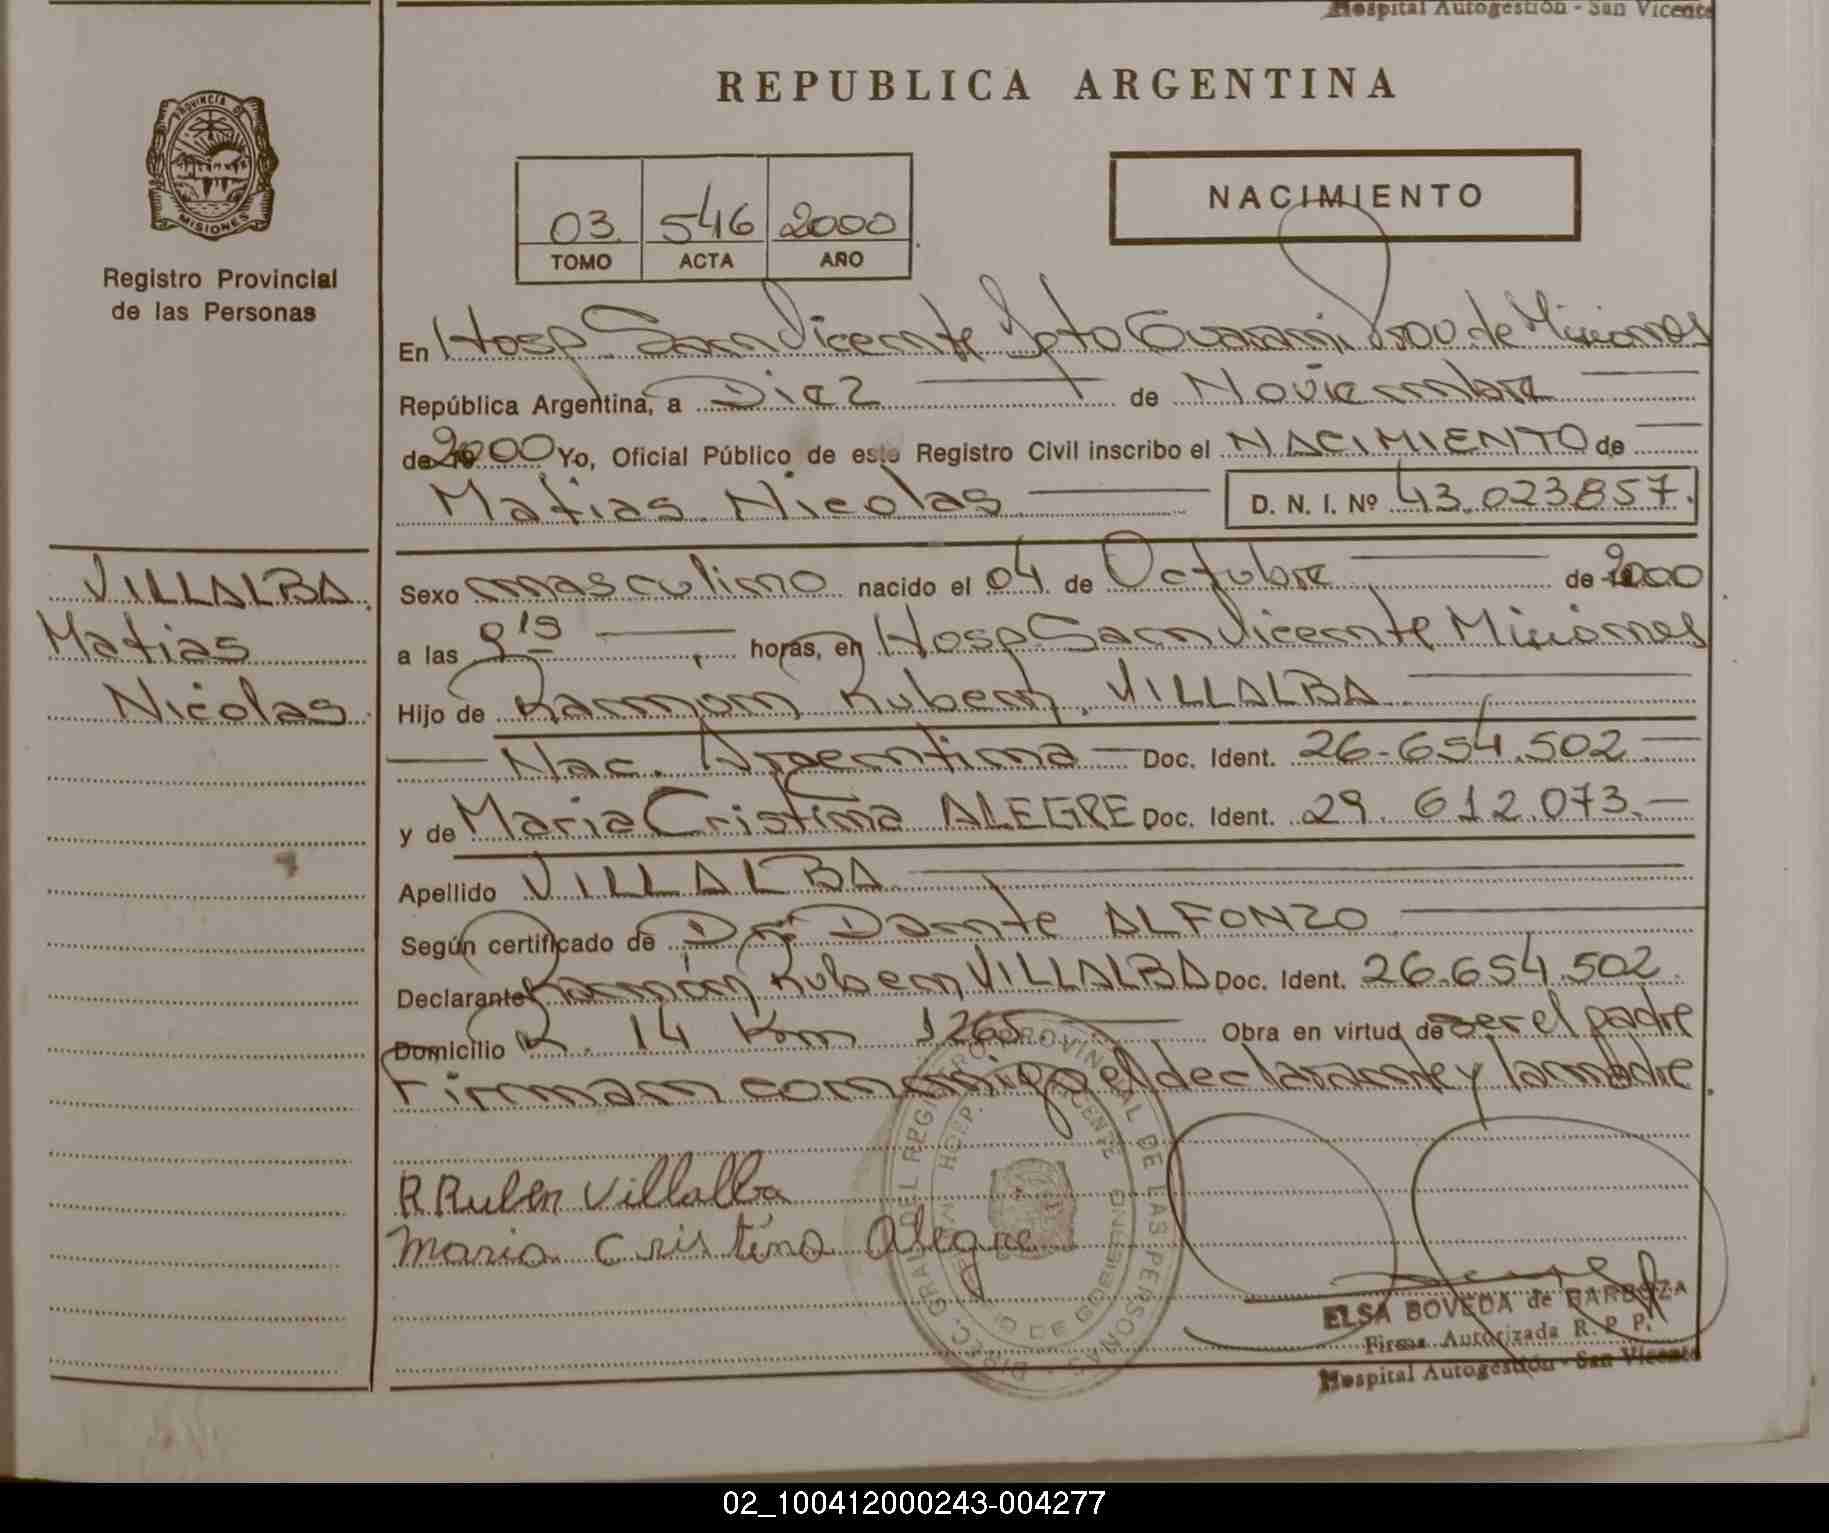 Hospital Autogestión - San Vicente
REPUBLICA ARGENTINA
PROVINCIA DE
MISIONES
Registro Provincial
de las Personas
03 546 2000
TOMO ACTA AÑO
NACIMIENTO
En Hosp San Vicente Dpto Guarani Prov. de Misiones
República Argentina, a Diez de Noviembre
de 2000 Yo, Oficial Público de este Registro Civil inscribo el NACIMIENTO de
Matias Nicolas D. N. I. Nº 43.023857.
VILLALBA
Matias
Nicolas
Sexo masculino nacido el 04 de Octubre de 2000
a las 9 15 horas, en Hosp San Vicente Misiones
Hijo de Ramon Ruben VILLALBA
Nac. Argentina Doc. Ident. 26.654.502
y de Maria Cristina ALEGRE Doc. Ident. 29.612.073.
Apellido VILLALBA
Según certificado de Dr. Dante ALFONZO
Declarante Ramón Ruben VILLALBA Doc. Ident. 26.654.502
Domicilio R. 14 Km 1265 Obra en virtud de ser el padre
Firman conmigo el declarante y la madre
R Ruben Villalba
Maria Cristina Alegre
DIREC. GRAL DEL REGISTRO PROVINCIAL DE LAS PERSONAS
HOSP. VICENTE
DE GOBIERNO
ELSA BOVEDA de BARBOZA
Firma Autorizada R. P. P.
Hospital Autogestión - San Vicente
02_100412000243-004277